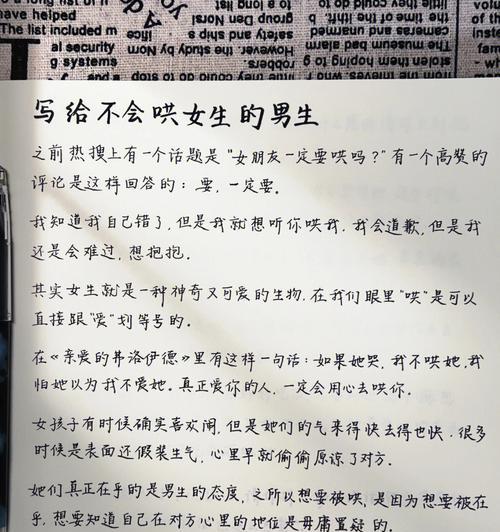 have helped
The list included m
al security
g systems
写给不会哄女生的男生
之前热搜上有一个话题是“女朋友一定要哄吗？”有一个高赞的
评论是这样回答的：要，一定要。
我知道我自己错了，但是我就想听你哄我。我会道歉，但是我
还是会难过，想抱抱。
其实女生就是一种神奇又可爱的生物，在我们眼里“哄”是可以
直接跟“爱”划等号的。
在《亲爱的弗洛伊德》里有这样一句话：如果她哭，我不哄她，我
怕她以为我不爱她。真正爱你的人，一定会用心去哄你。
女孩子有时候确实喜欢闹，但是她们的气来得快去得也快。很多
时候是表面还假装生气，心里早就偷偷原谅了对方。
她们真正在乎的是男生的态度，之所以想要被哄，是因为想要被在
乎，想要知道自己在对方心里的地位是毋庸置疑的。